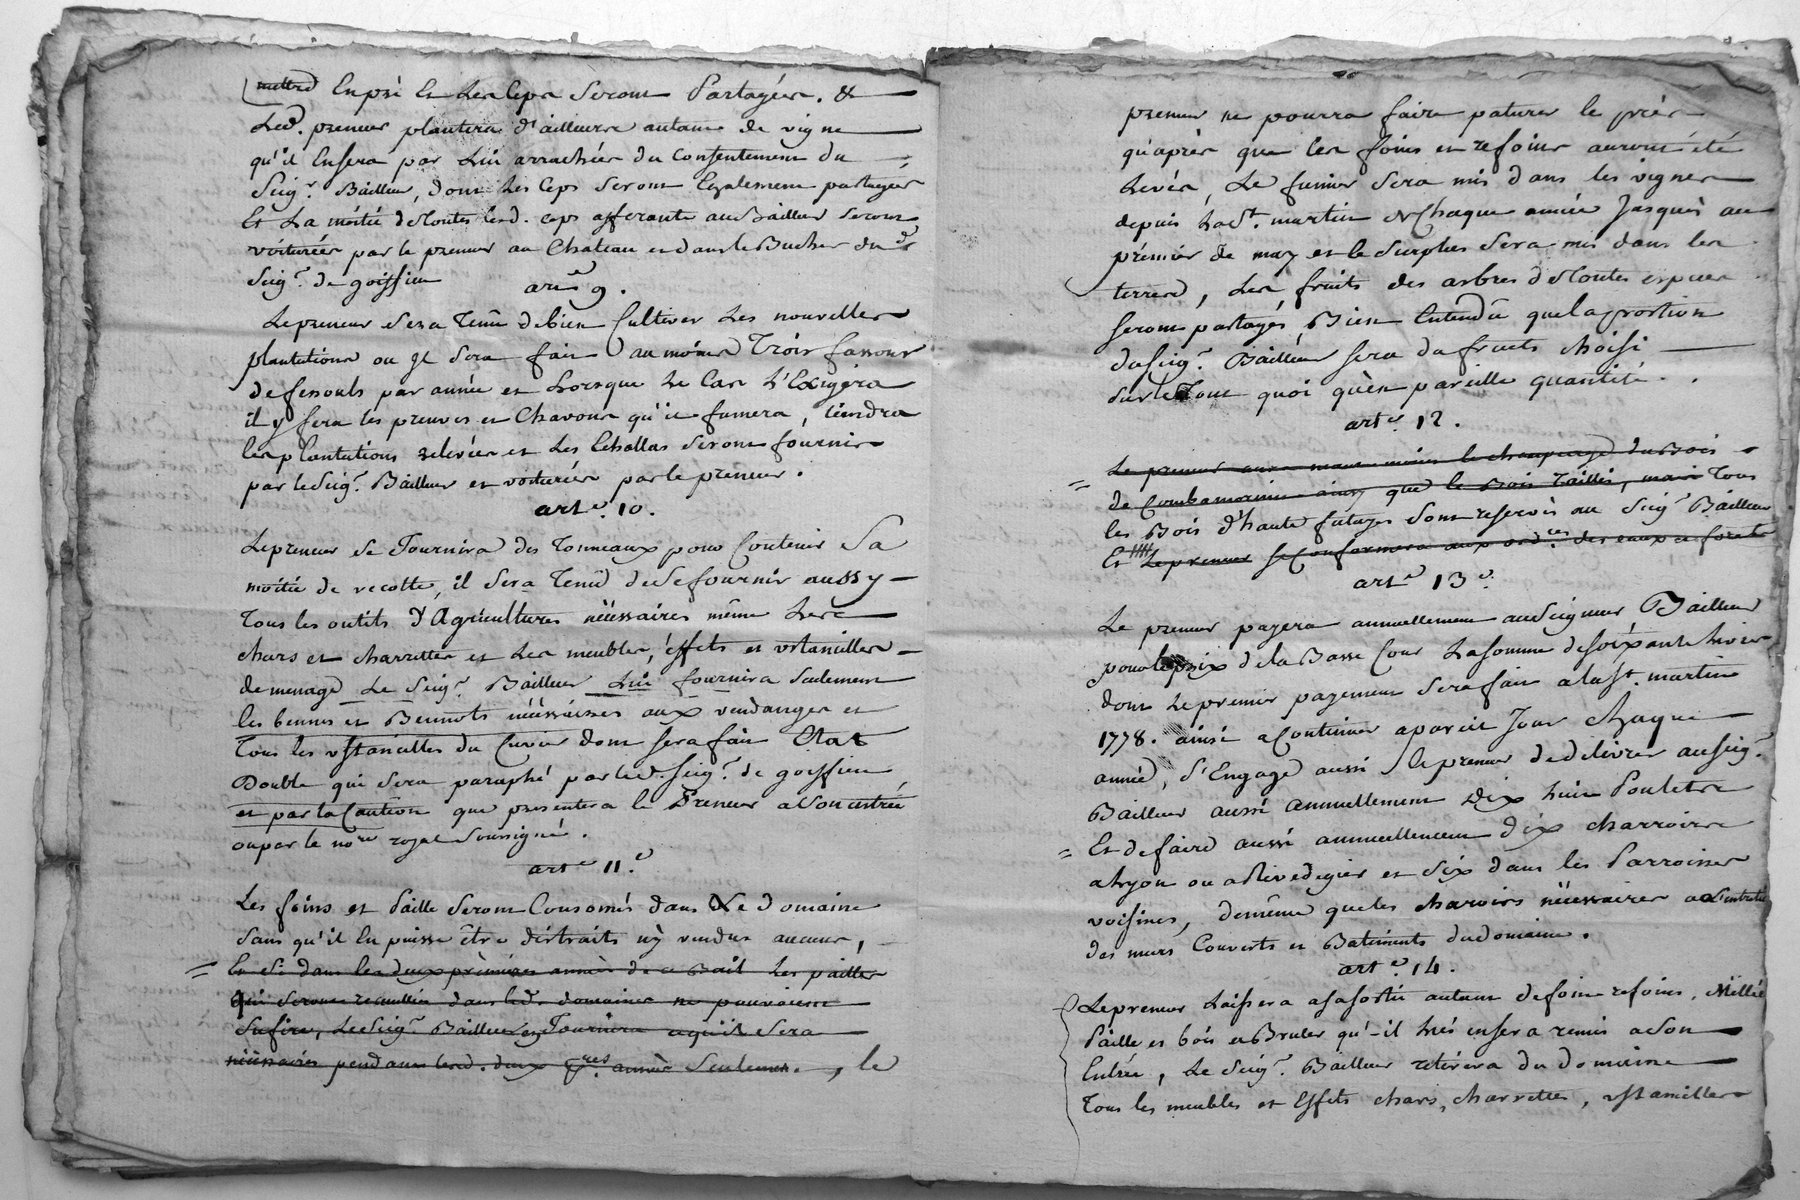 mettre En pré Et Les Ceps Seront Partagées. &
Led. preneur plantera d'ailleurs autant de vigne
qu'il En sera par Lui arrachées du Consentement du
Seigr. Bailleur, dont Les Ceps seront Egalement partagés
Et La moitié de toutes lesd. ceps afferante au Bailleur seront
voiturées par le preneur au Chateau et dans le Bucher dud.
Seigr. de goiffieu
arte 9.
Le preneur Sera Tenû de bien Cultiver Les nouvelles
plantations ou Jl Sera fait au moins Trois fassons
de fessouls par année et Lorsque Le Cas L'Exigéra
il y fera les preuves et Chavons qu'il fumera, tiendra
les plantations relevées et Les Echallas Seront fournis
par le Seigr. Bailleur et voiturées par le preneur.
arte. 10.
Le preneur Se Fournira des Tonneaux pour Contenir Sa
moitié de recolte, il Sera Tenû de Se fournir aussy
Tous les outils d'Agricultures nécessaires même Les
chars et charrettes et Les meubles, éffets et ustancilles
de menage Le Seigr. Bailleur Lui fournira Seulement
les bennes et Bennots nécessaires aux vendanges et
Tous les ustancilles du Cuvier dont sera fait Etat
Double qui Sera paraphé par led. Seigr. de goiffieu
et par la Caution que presentera le Preneur a Son entrée
ou par le nore royal Soussigné.
arte 11e.
Les foins et Paille Seront Consomés dans Le domaine
Sans qu'il En puisse être distraits ny vendus aucuns,
Et Si dans les deux prémiéres années de ce Bail Les pailles
qui Seront recueillies dans led. domaine ne pouvoient
Sufire, Le Seigr. Bailleur en Fournira ce qu'il Sera
nécéssaires pendant lesd. deux pres. année Seulement. , le
preneur ne pourra faire paturer le prés
qu'après que les foins et refoins auront été
Levés, Le fumier Sera mis dans les vignes
depuis La St. martin de Chaque année Jusques au
prémiér de may et le Surplus Sera mis dans les
terres, Les fruits des arbres de toutes especes
seront partagés, Bien Entendû que la portion
du Seigr. Bailleur sera du fruits choisi
Sur le Tout quoi qu'en pareille quantité.
arte. 12.
Le preneur aura
de Combamorin ainsy que le Bois Taillis, mais Tous
les Bois d'haute futayes sont reservés au Seigr Bailleur
Et Le preneur se Conformera aux ordces des eaux et forets
arte 13e.
Le preneur payera annuellement au Seigneur Bailleur
pour le prix de la Basse Cour La Somme de soixante Livres
dont Le premier payement Sera fait a la St. martin
1778. ainsi a Continuer a pareil Jour Chaque
année, S'Engage aussi le preneur de delivrer au Seigr.
Bailleur aussi annuellement Dix huit Poulets
Et de faire aussi annuellement dix charrois
a Lyon ou a Rivedegier et Six dans les Parroisses
voisines, de même que les charois nécessaires a L'entretien
des murs Couverts et Batiments du domaine.
arte. 14.
Le preneur Laissera a sa sortie autant de foin refoins,
Paille et bois a Bruler qu'il Lui en sera remis a Son
Entrée, Le Seigr. Bailleur retirera du domaine
Tous les meubles et Effets chars, charrettes, ustancilles